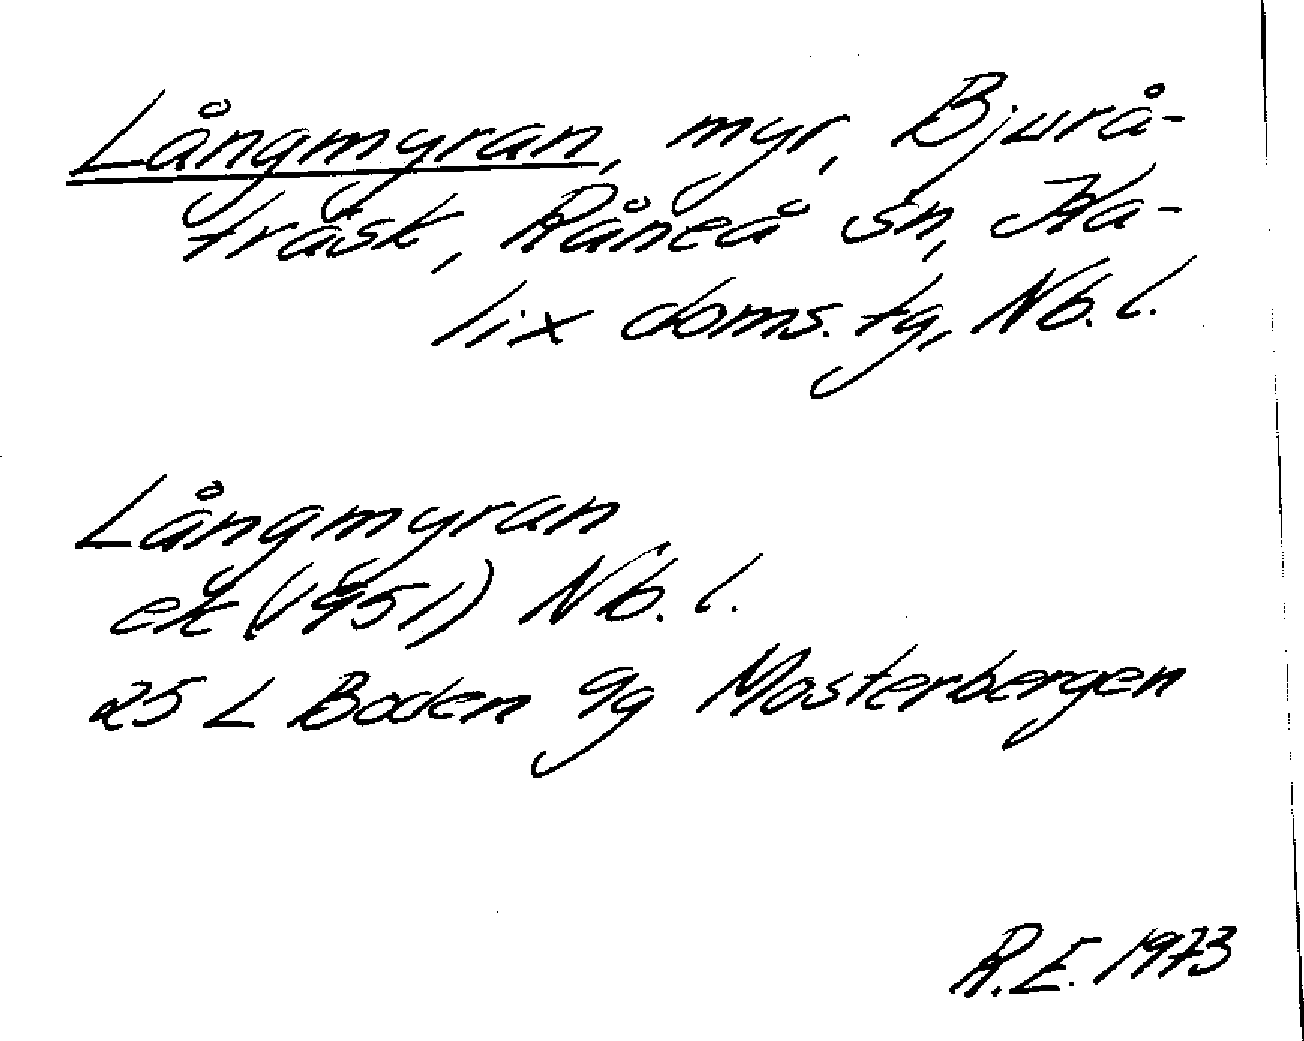 Långmyran, myr, Bjurå-
träsk, Råneå sn, Ka-
lix doms. tg, Nb. l.
Långmyran
ek (1951) Nb. l.
25 L Boden 9g Mosterbergen
R.E. 1973